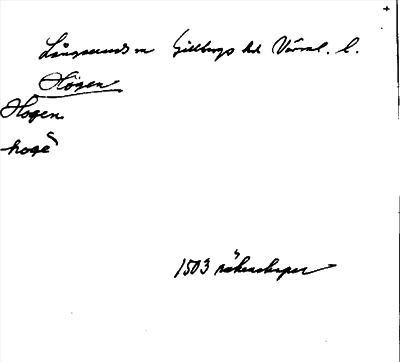 Långseruds sn Gillbergs hd Värml. l.
Högen
Hogen
hogē
1503 räkenskaper